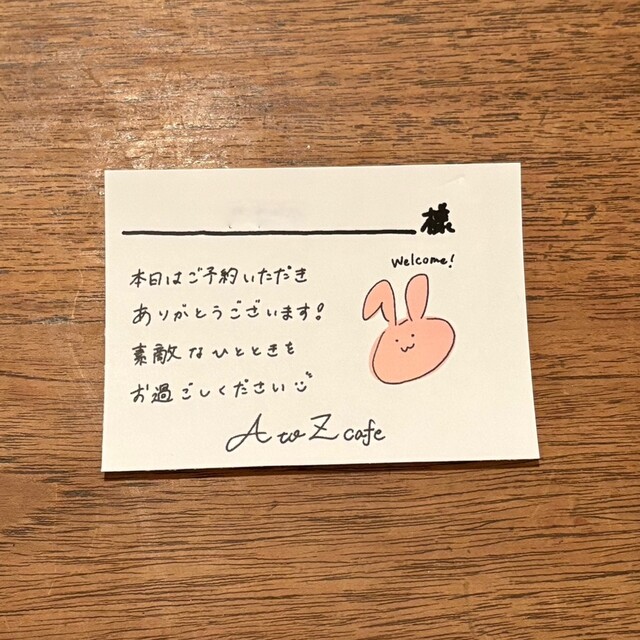 様
Welcome!
本日はご予約いただき
ありがとうございます!
素敵なひとときを
お過ごしください
A to Z cafe